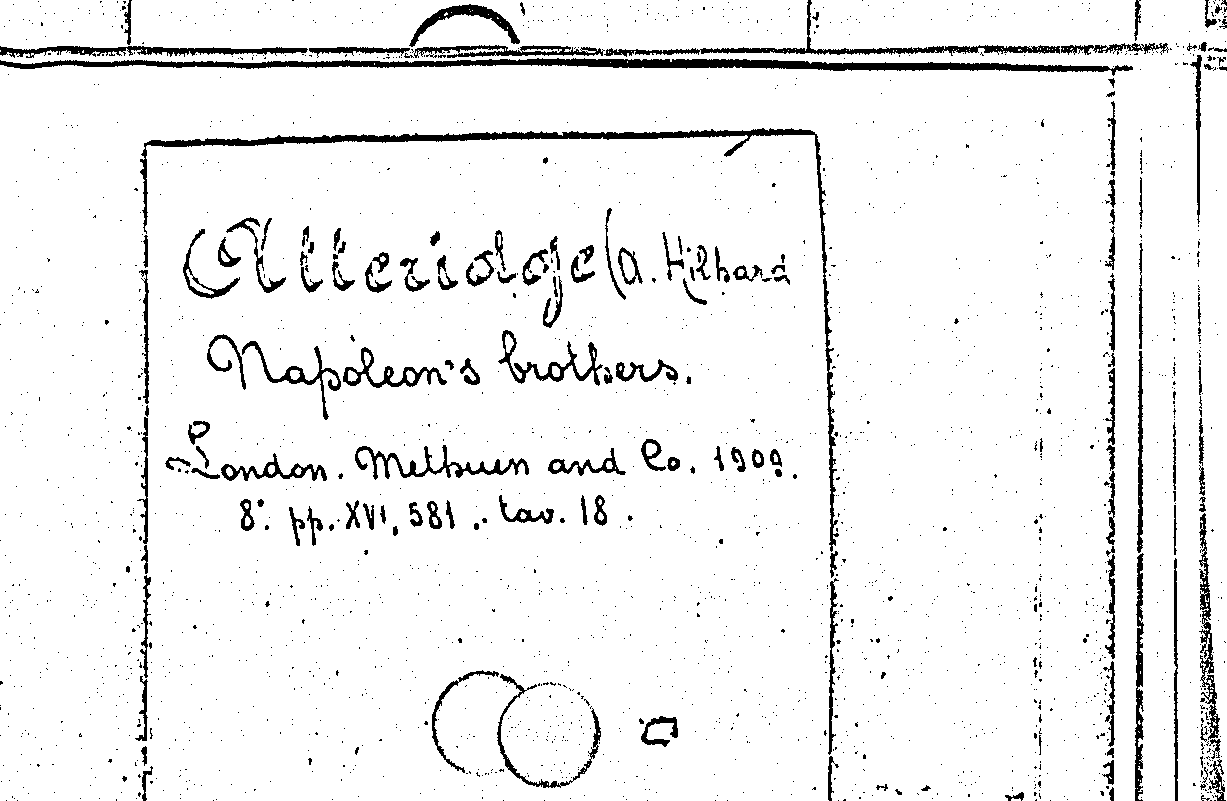 Atteridge (A. Hilbard
Napoleon's brothers.
London. Methuen and Co. 1909.
8°. pp. XVI, 581 .. tav. 18.